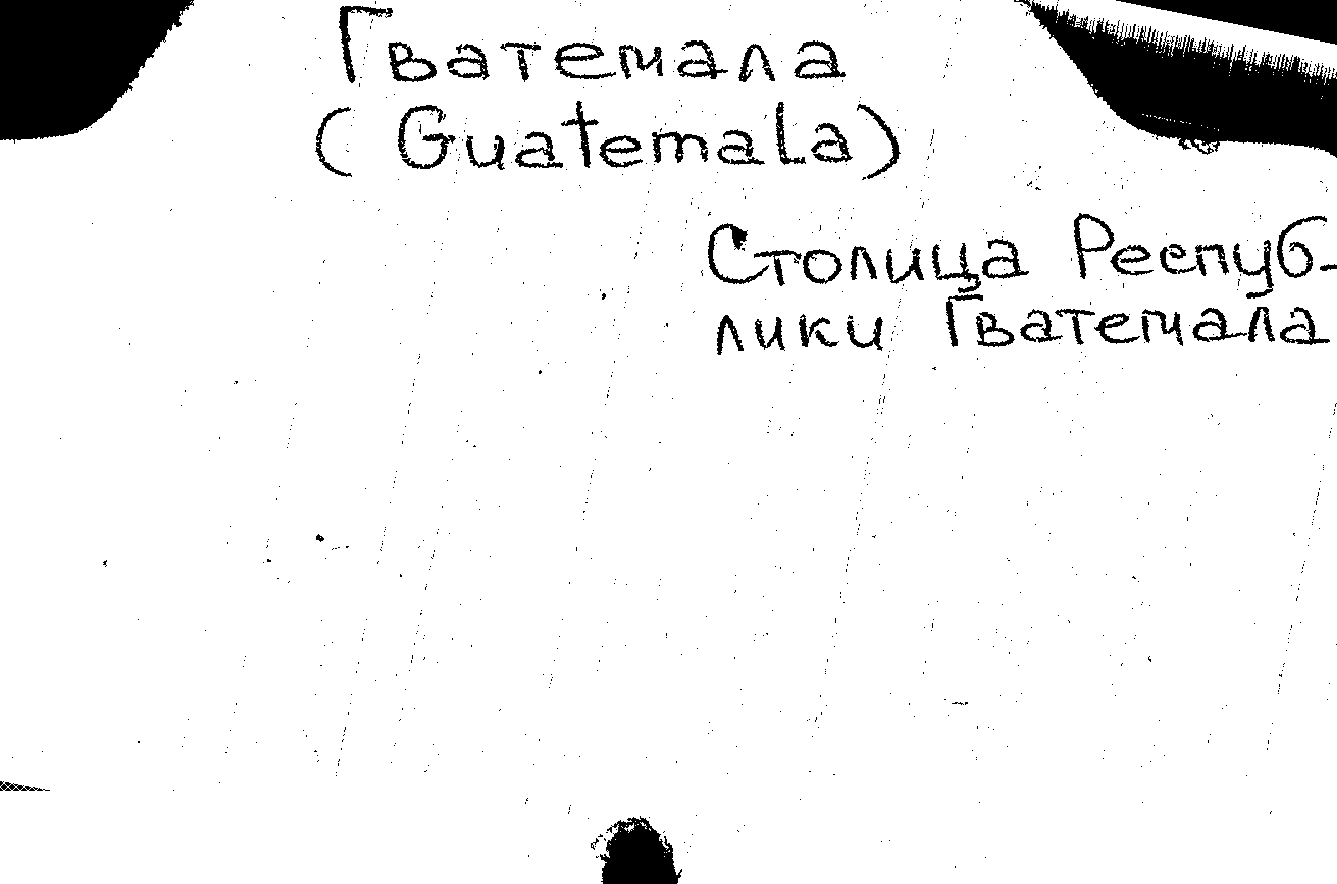 Гватемала
(Guatemala)
Столица Респуб-
лики Гватемала